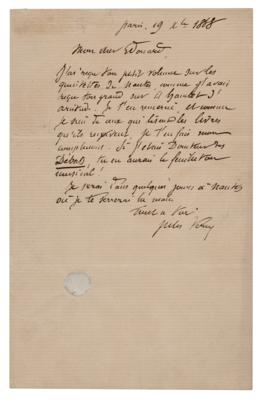 Paris, 19 Xbre 1868
Mon cher Edouard,
J'ai reçu ton petit volume sur les
quintettes de Nantes, comme j'avais
reçu ton grand sur
artiste. Je t'en remercie et comme
je suis de ceux qui lisent les livres
qu'ils reçoivent, je t'en fais mon
compliment. Si j'étais Directeur des
Débats, tu en aurais le feuilleton
musical!
Je serai dans quelques jours à Nantes
où je te serrerai la main
Tout à toi
Jules Verne